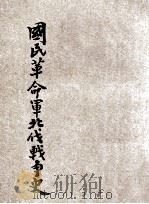 國民革命軍北伐戰事史